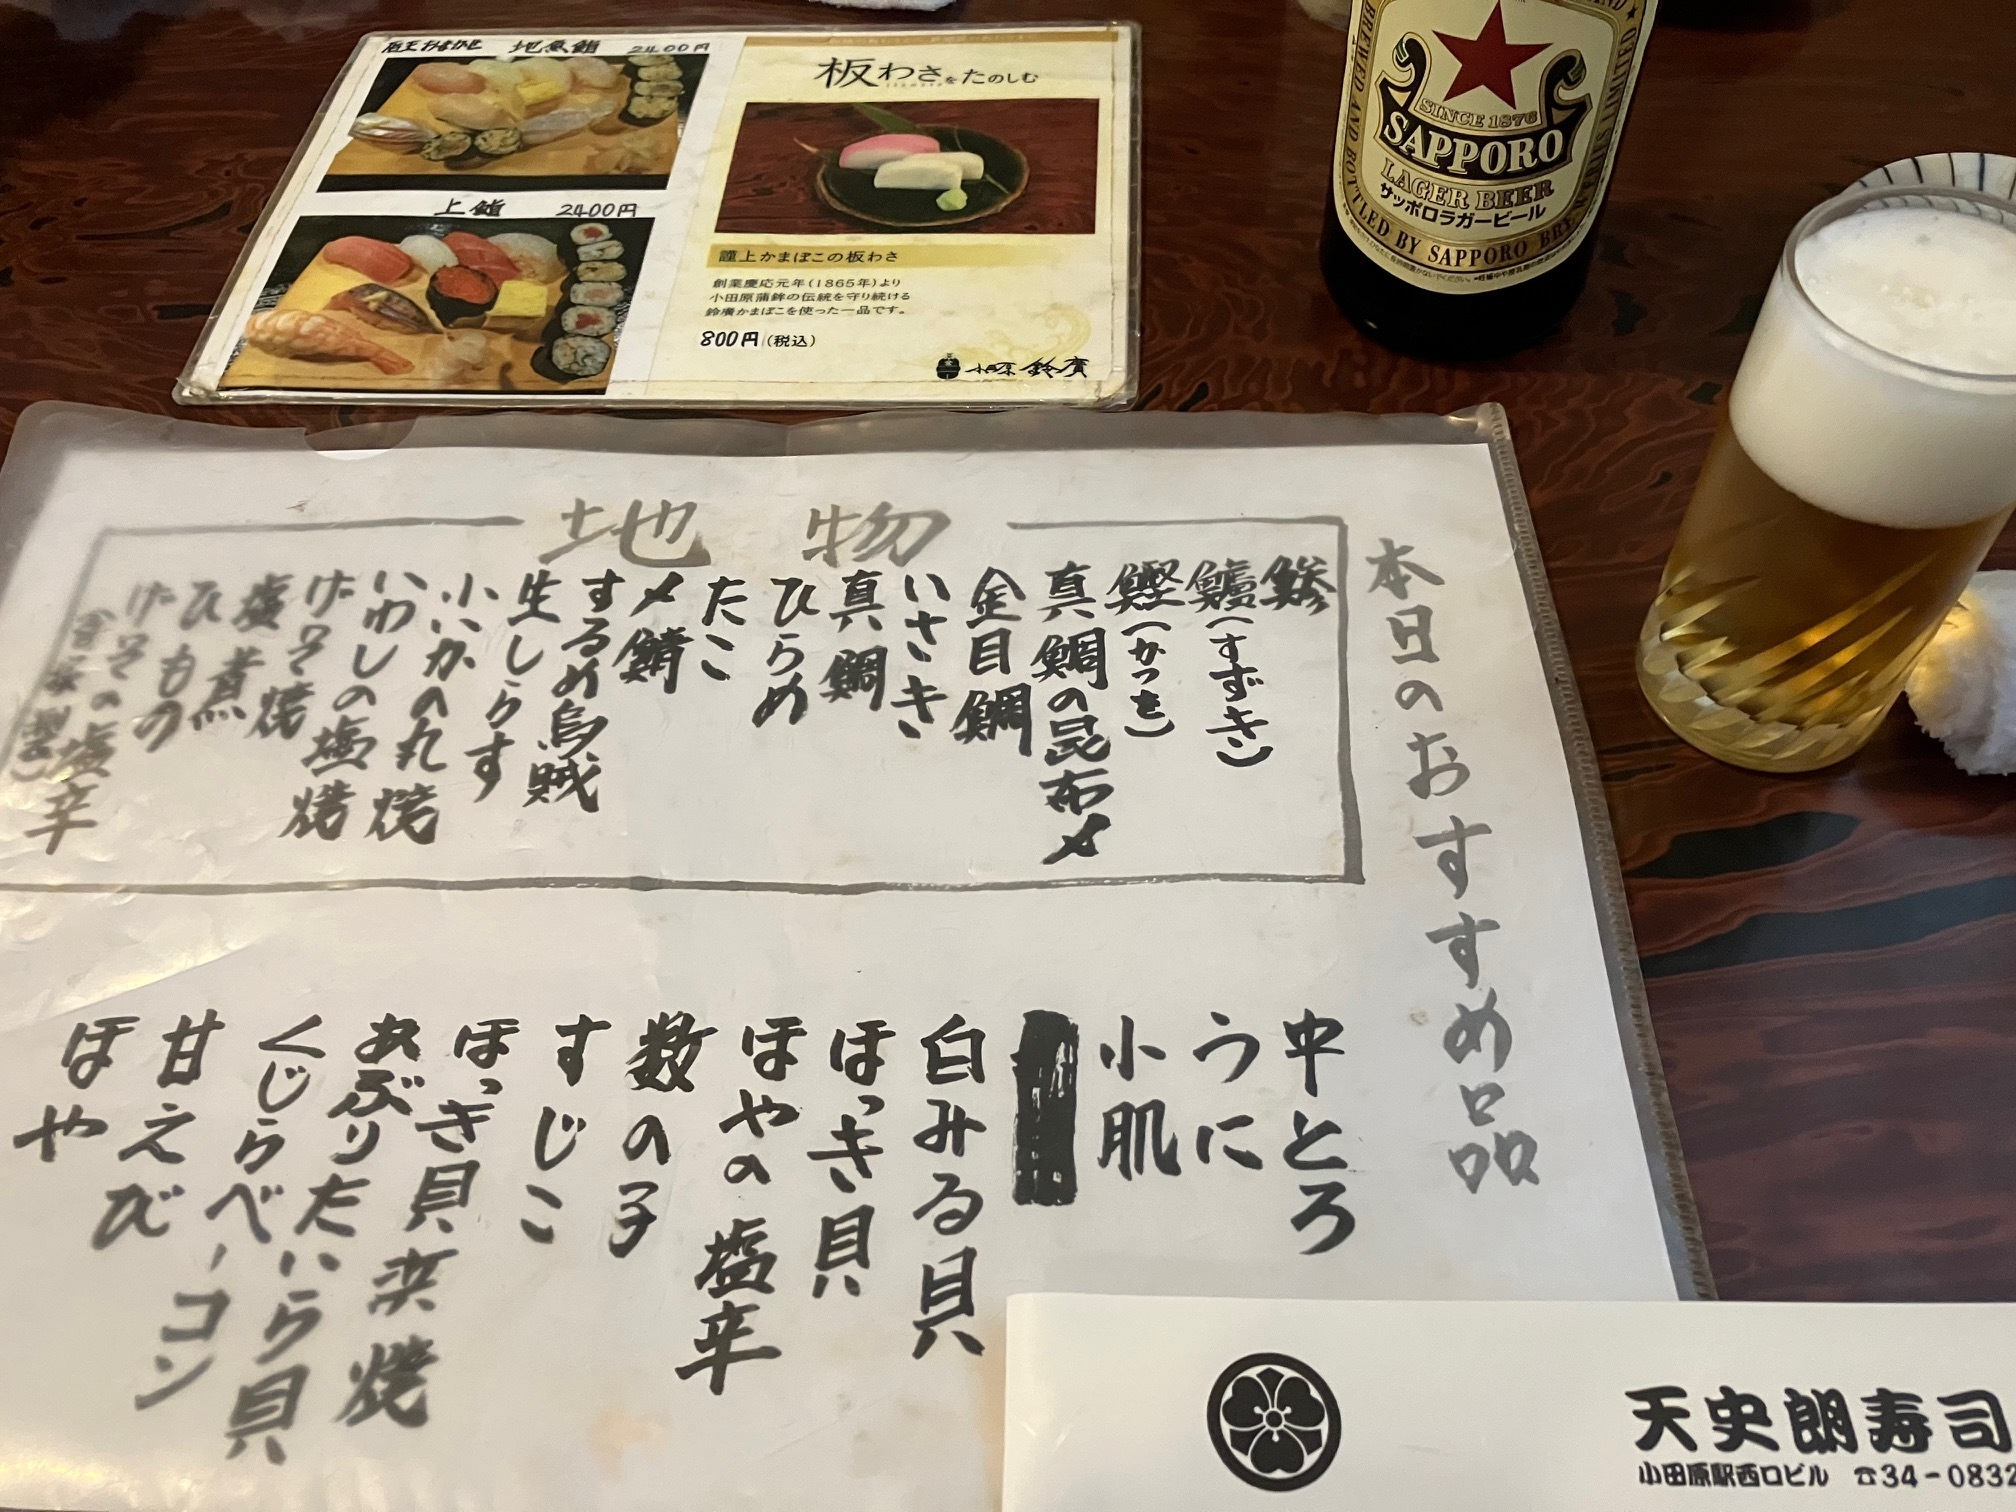 店主おまかせ 地魚鮨 2400円
上鮨 2400円
板わさをたのしむ
謹上かまぼこの板わさ
創業慶応元年(1865年)より
小田原蒲鉾の伝統を守り続ける
鈴廣かまぼこを使った一品です。
800円(税込)
小田原 鈴廣
SINCE 1876
SAPPORO
LAGER BEER
サッポロラガービール
BREWED AND BOTTLED BY SAPPORO BREWERIES LIMITED
本日のおすすめ品
地物
鯵
鱸(すずき)
鰹(かつを)
真鯛の昆布〆
金目鯛
いさき
真鯛
ひらめ
たこ
〆鯖
するめ烏賊
生しらす
小いかの丸焼
いわしの塩焼
げそ焼
塩焼
煮
ひもの
げその塩辛
(自家製)
中とろ
うに
小肌
白みる貝
ほっき貝
ほやの塩辛
数の子
すじこ
ほっき貝浜焼
あぶりたいら貝
くじらベーコン
甘えび
ほや
天史朗寿司
小田原駅西口ビル ☎34-0832